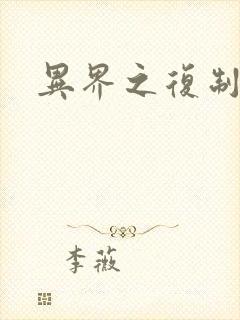 異界之復制
李薇